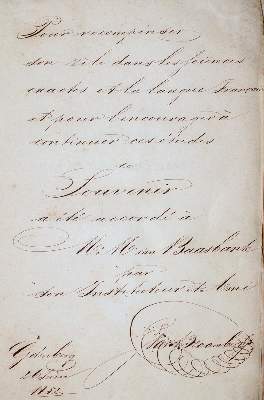 Pour recompenser
son zèle dans les sciences
exactes et la langue Français
et pour l'encourager à
continuer ces études
ce
Souvenir
a été accordé à
M. M. van Baasbank
par
son Instituteur et Ami